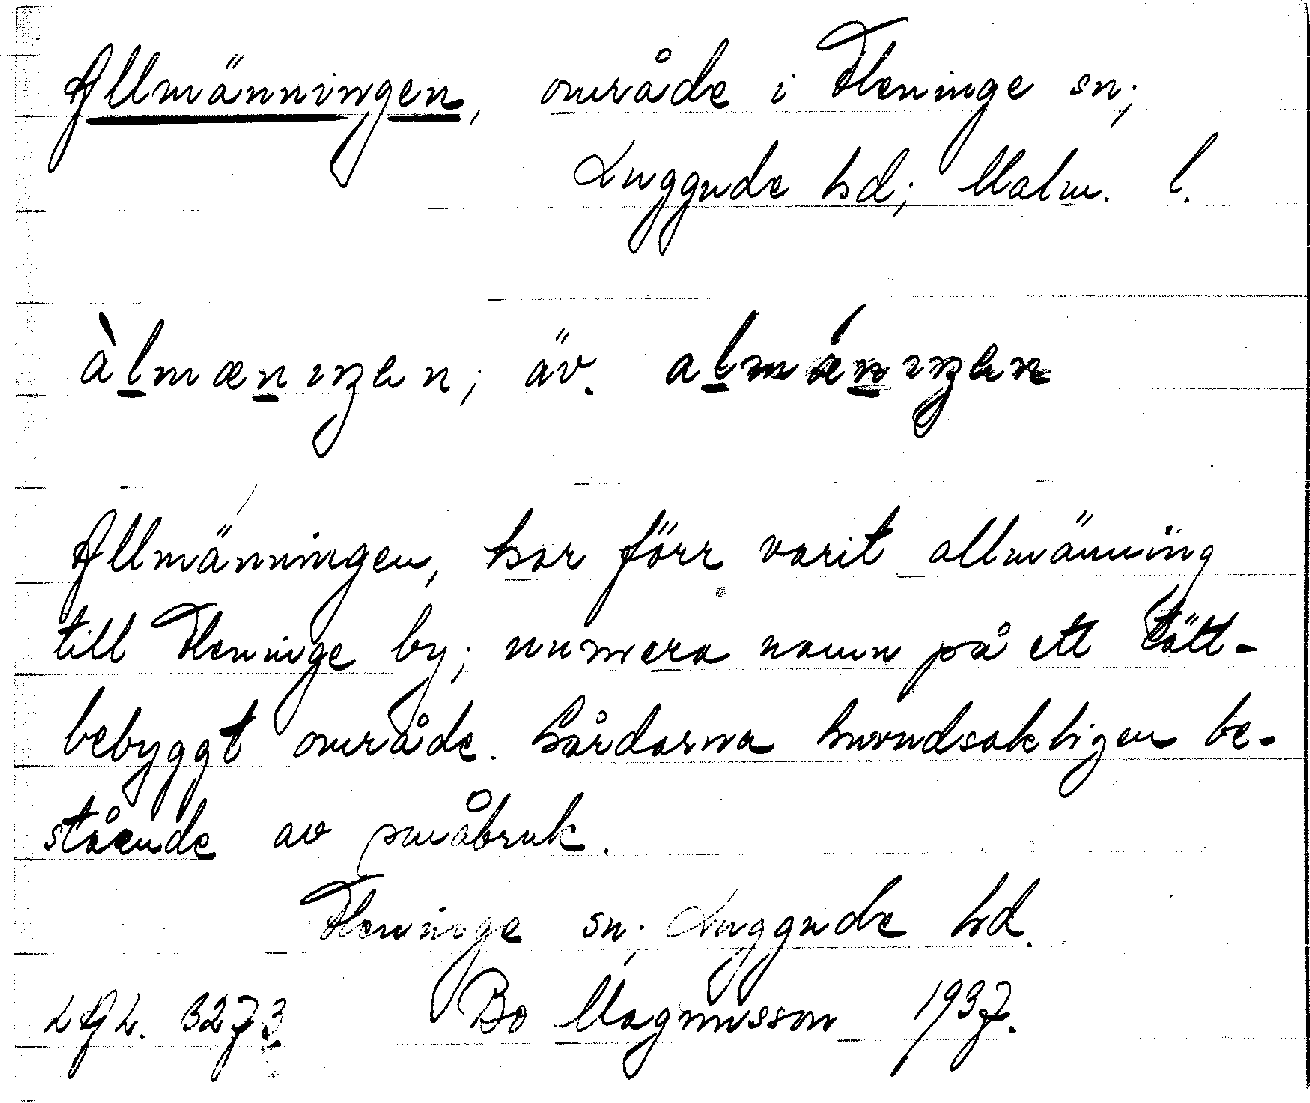 Allmänningen, område i Fleninge sn;
Luggude hd; Malm. l.
àlmænıŋen; äv. almǽnıŋen
Allmänningen, har förr varit allmänning
till Fleninge by; numera namn på ett tätt-
bebyggt område. Gårdarna huvudsakligen be-
stående av småbruk.
Fleninge sn. Luggude hd.
LAL. 3273 Bo Magnusson 1937.